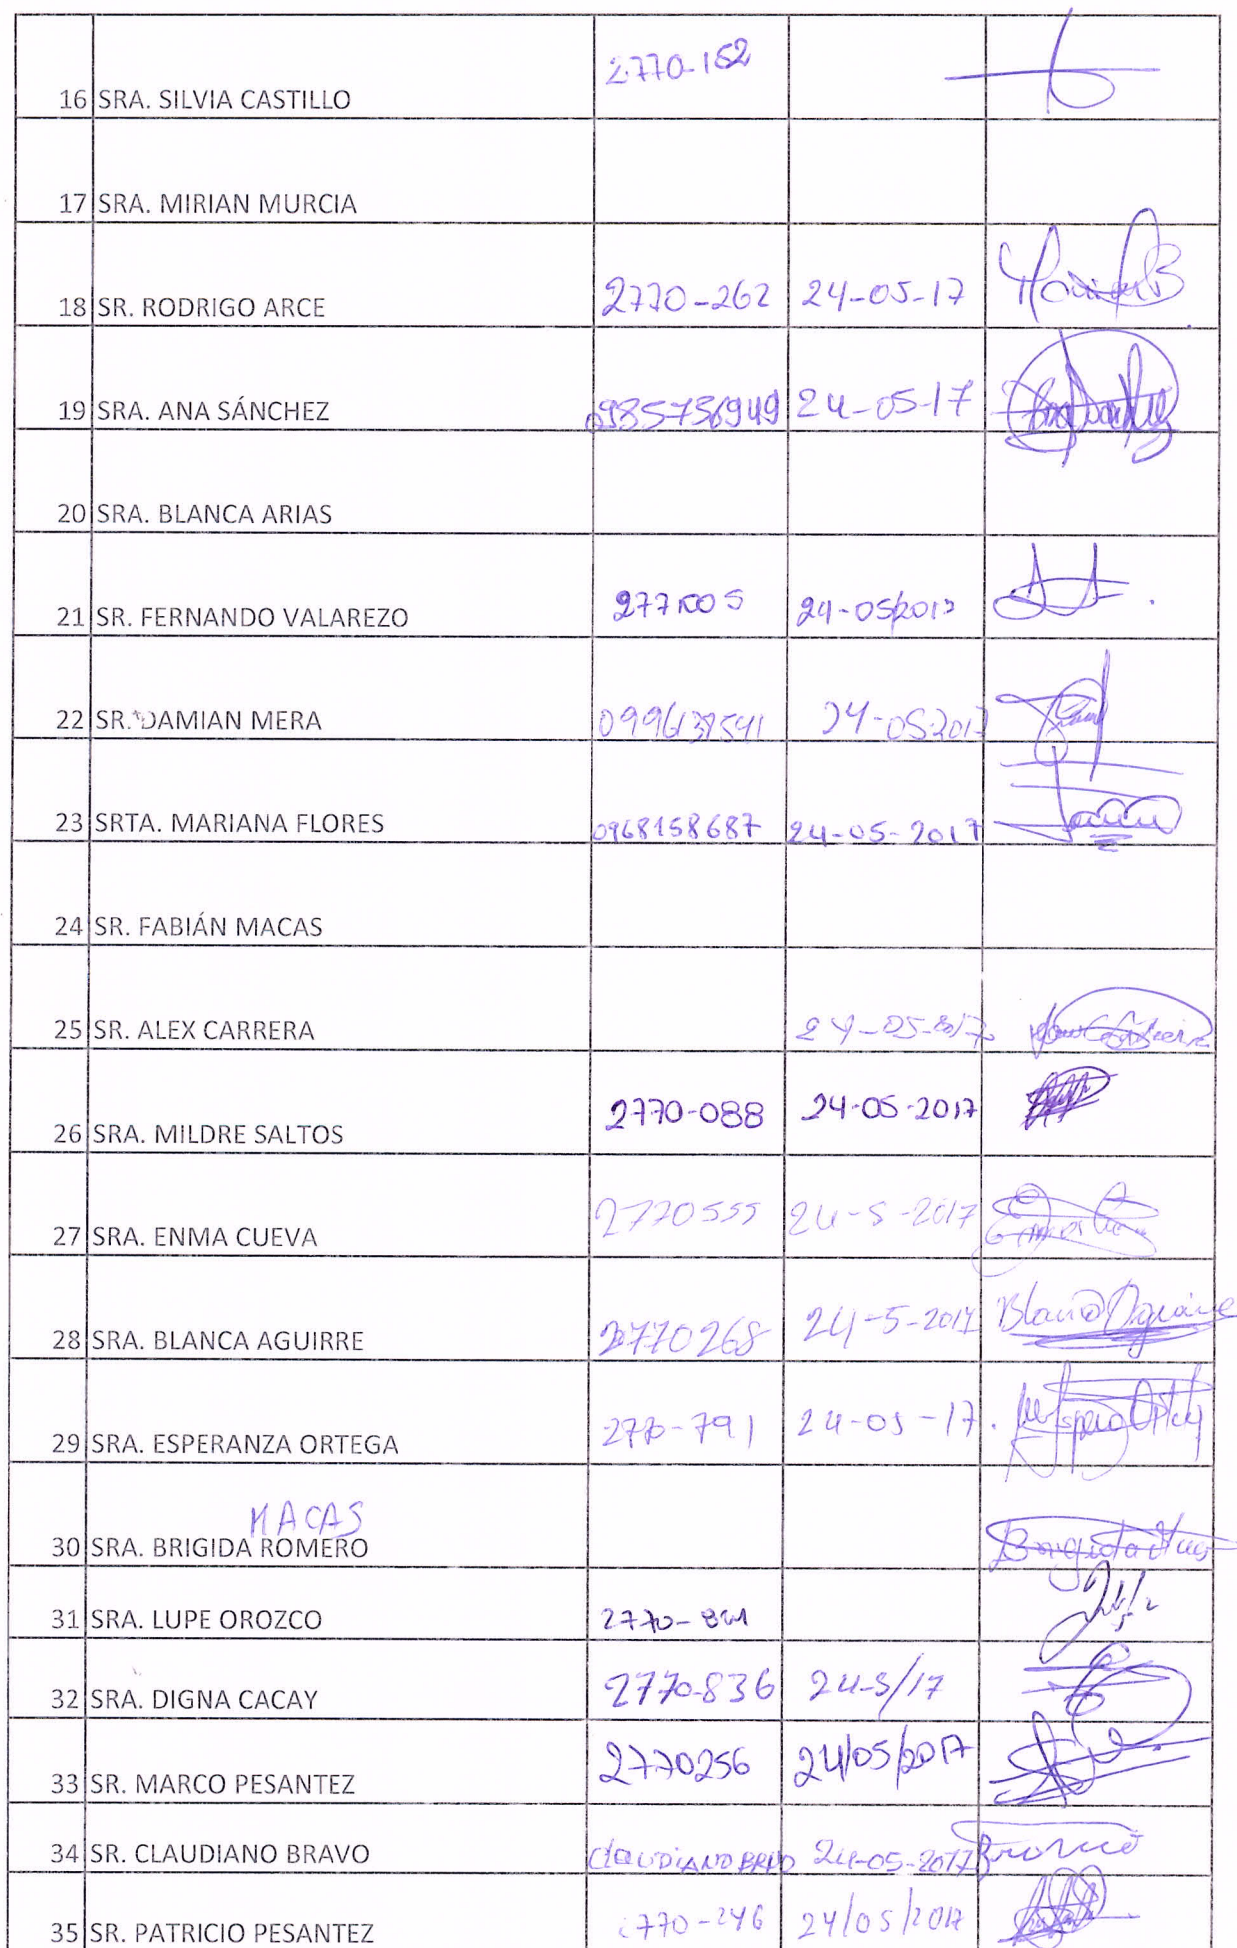 16 SRA. SILVIA CASTILLO 2770-152
17 SRA. MIRIAN MURCIA
18 SR. RODRIGO ARCE 2770-262 24-05-17
19 SRA. ANA SÁNCHEZ 0985756949 24-05-17
20 SRA. BLANCA ARIAS
21 SR. FERNANDO VALAREZO 2771005 24-05/2017
22 SR. DAMIAN MERA 24-05-2017
23 SRTA. MARIANA FLORES 0968158687 24-05-2017
24 SR. FABIÁN MACAS
25 SR. ALEX CARRERA 24-05-2017
26 SRA. MILDRE SALTOS 2770-088 24-05-2017
27 SRA. ENMA CUEVA 2770555 24-5-2017
28 SRA. BLANCA AGUIRRE 2770268 24-5-2017 Blanca Aguirre
29 SRA. ESPERANZA ORTEGA 2770-791 24-05-17
MACAS
30 SRA. BRIGIDA ROMERO Brigida Macas
31 SRA. LUPE OROZCO
32 SRA. DIGNA CACAY 2770-836 24-5/17
33 SR. MARCO PESANTEZ 2770256 24/05/2017
34 SR. CLAUDIANO BRAVO 24-05-2017
35 SR. PATRICIO PESANTEZ 2770-246 24/05/2017